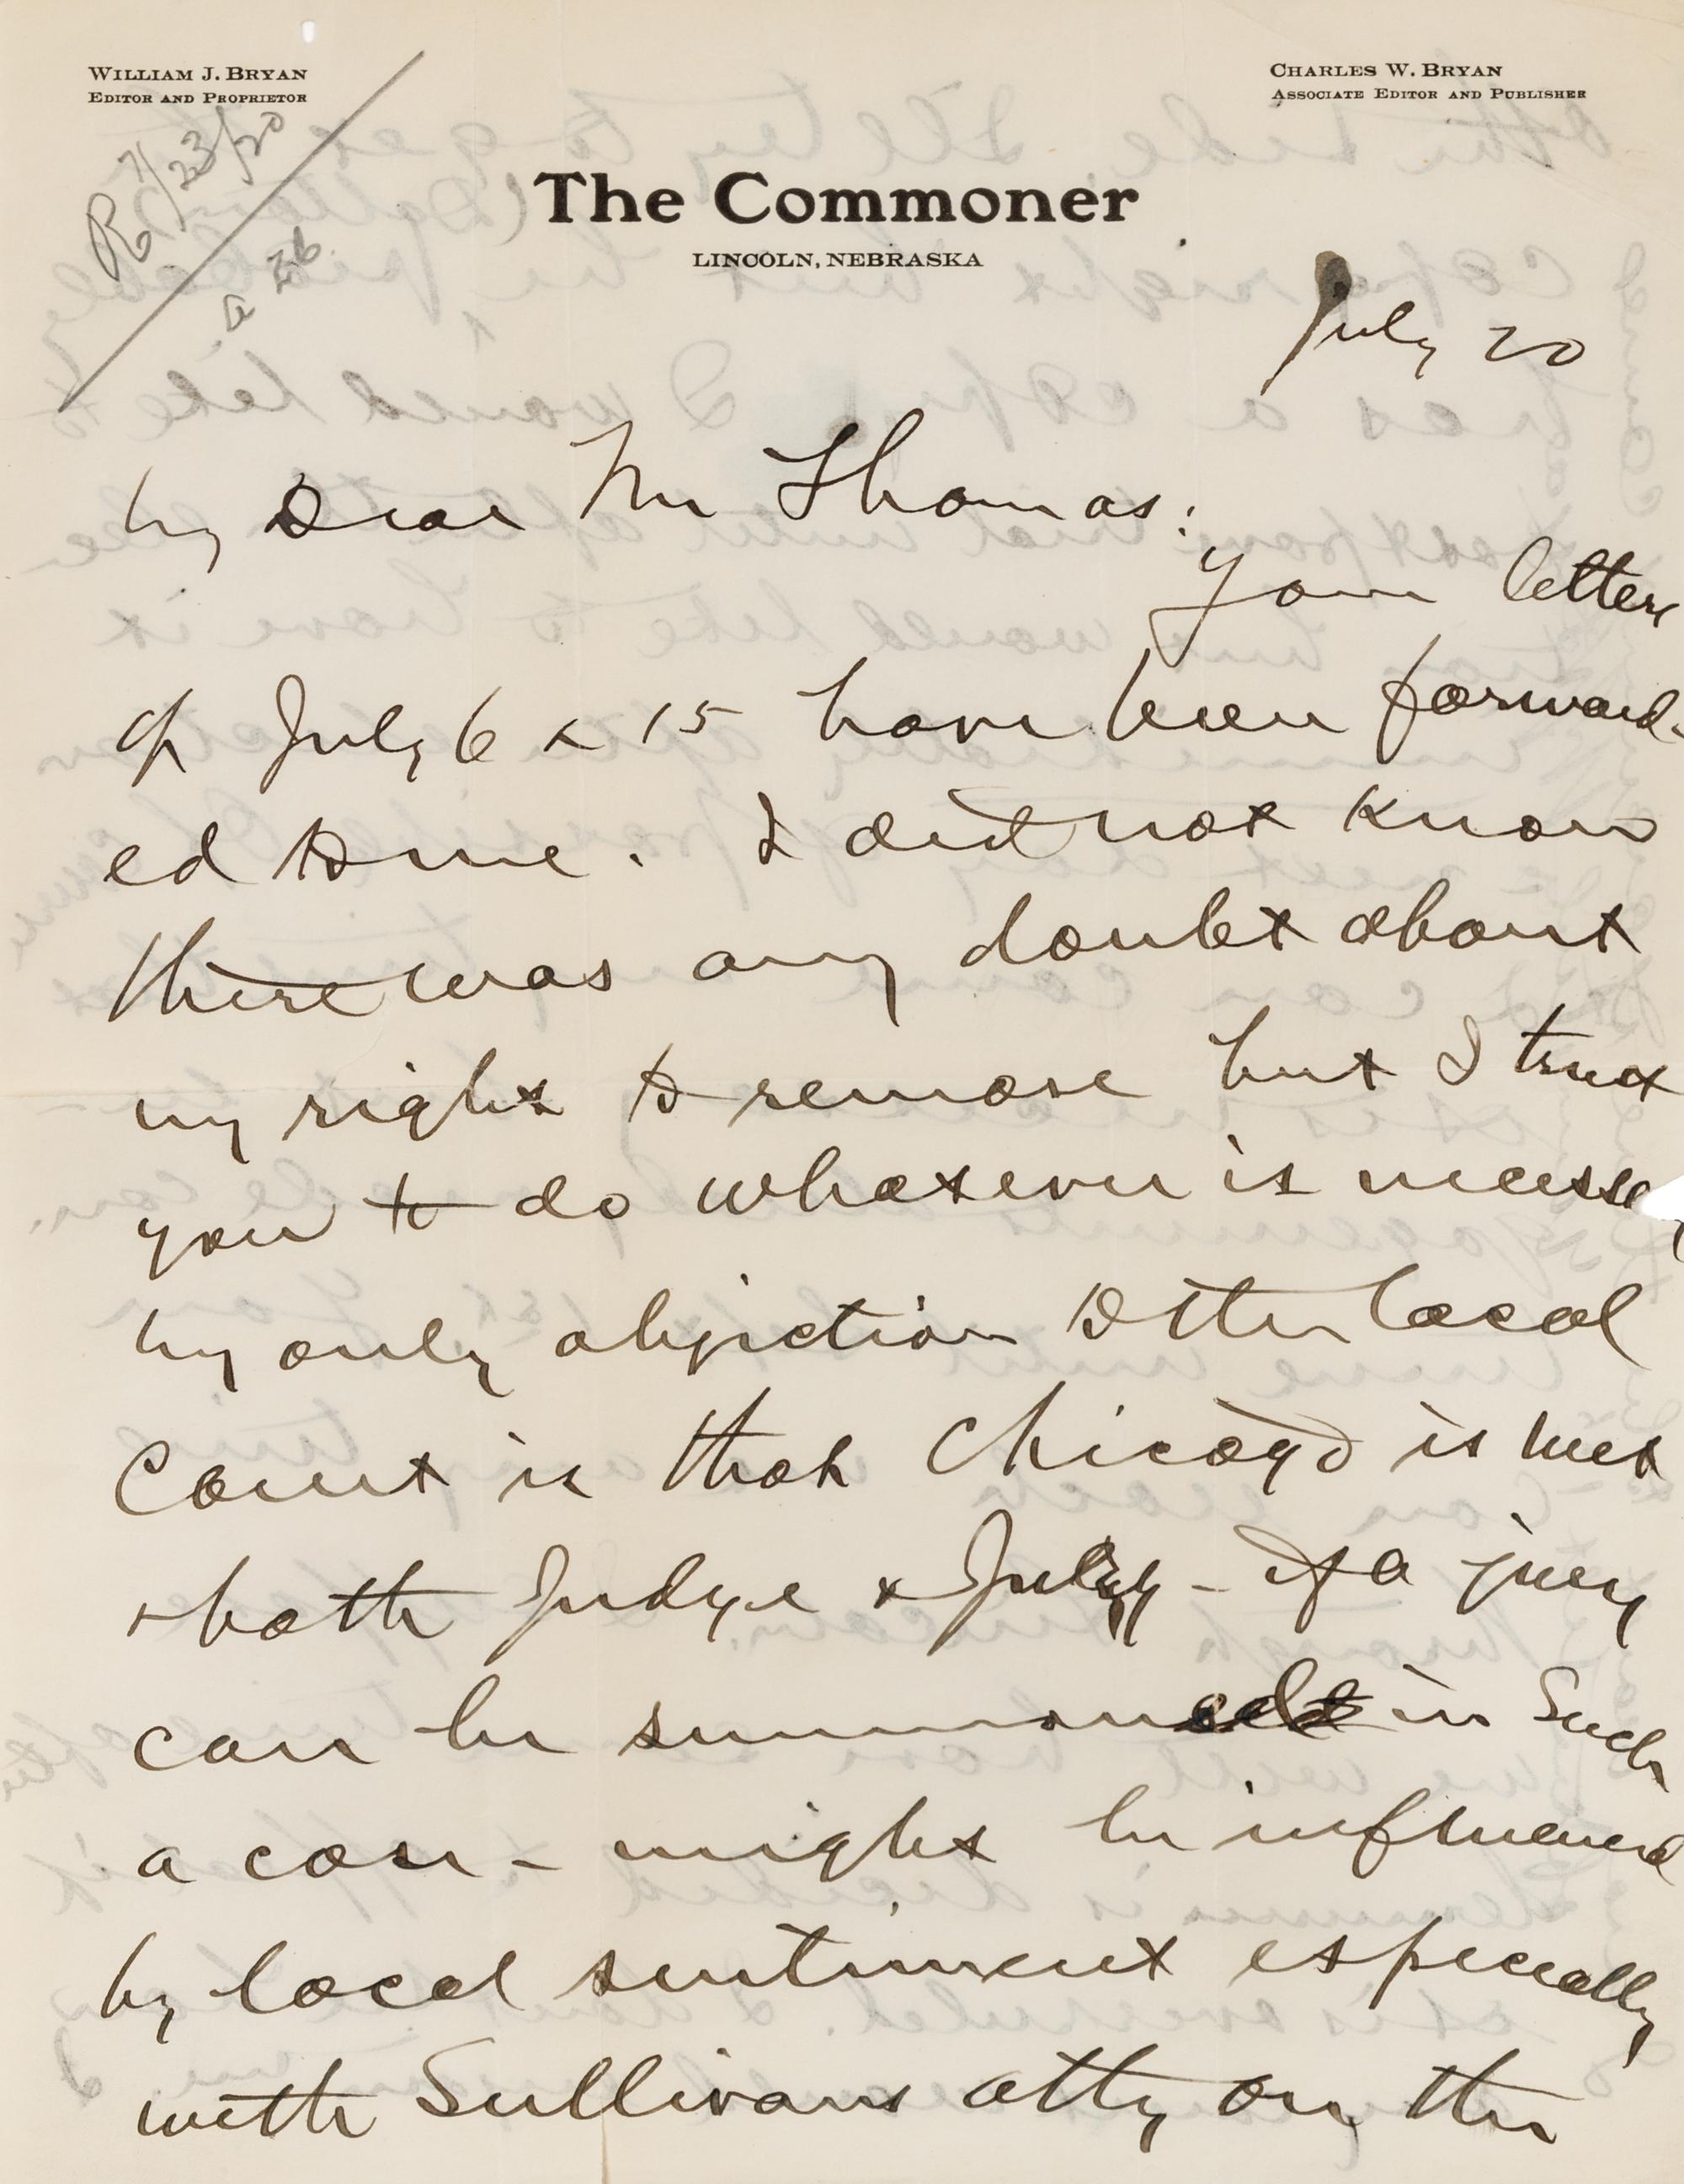 WILLIAM J. BRYAN
EDITOR AND PROPRIETOR
CHARLES W. BRYAN
ASSOCIATE EDITOR AND PUBLISHER
R 7/23/20
a 26
The Commoner
LINCOLN, NEBRASKA
July 20
My Dear Mr Thomas:
Your letters
of July 6 & 15 have been forward-
ed to me. I did not know
there was any doubt about
my right to remove but I trust
you to do whatever is necessa
My only objection to the local
Court is that Chicago is wet
& both Judge & Jury - If a jury
can be summoned in such
a case - might be influenced
by local sentiment especially
with Sullivans atty on the